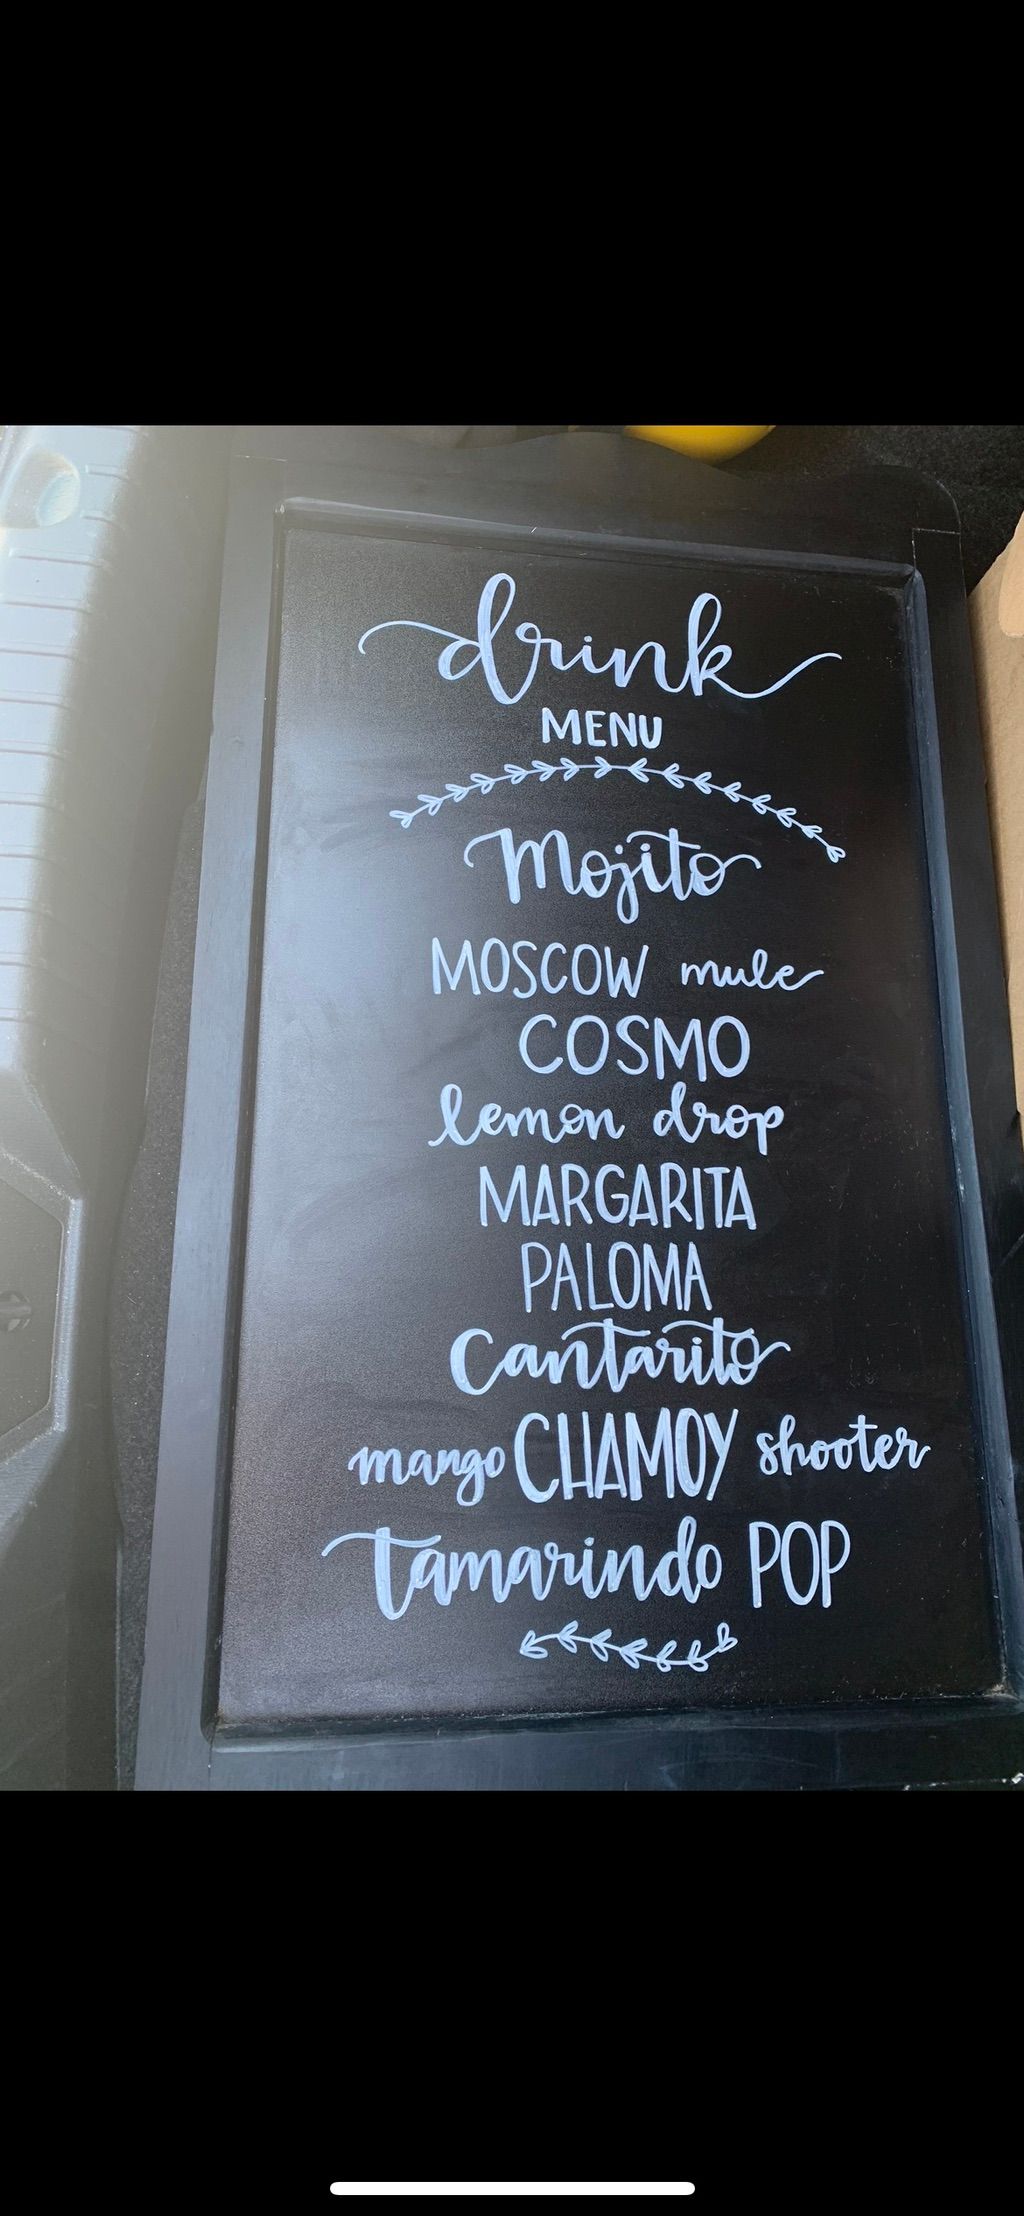 drink
MENU
Mojito
MOSCOW mule
COSMO
lemon drop
MARGARITA
PALOMA
Cantarito
mango CHAMOY shooter
tamarindo POP